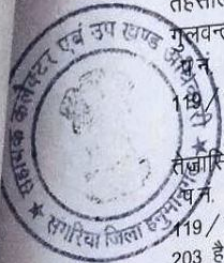 तहसील
गुलवन्त
प.नं.
119/
तेजासि
प.नं.
119/
203 है
सहायक कलेक्टर एवं उप खण्ड अधिकारी
संगरिया जिला हनुमानगढ़